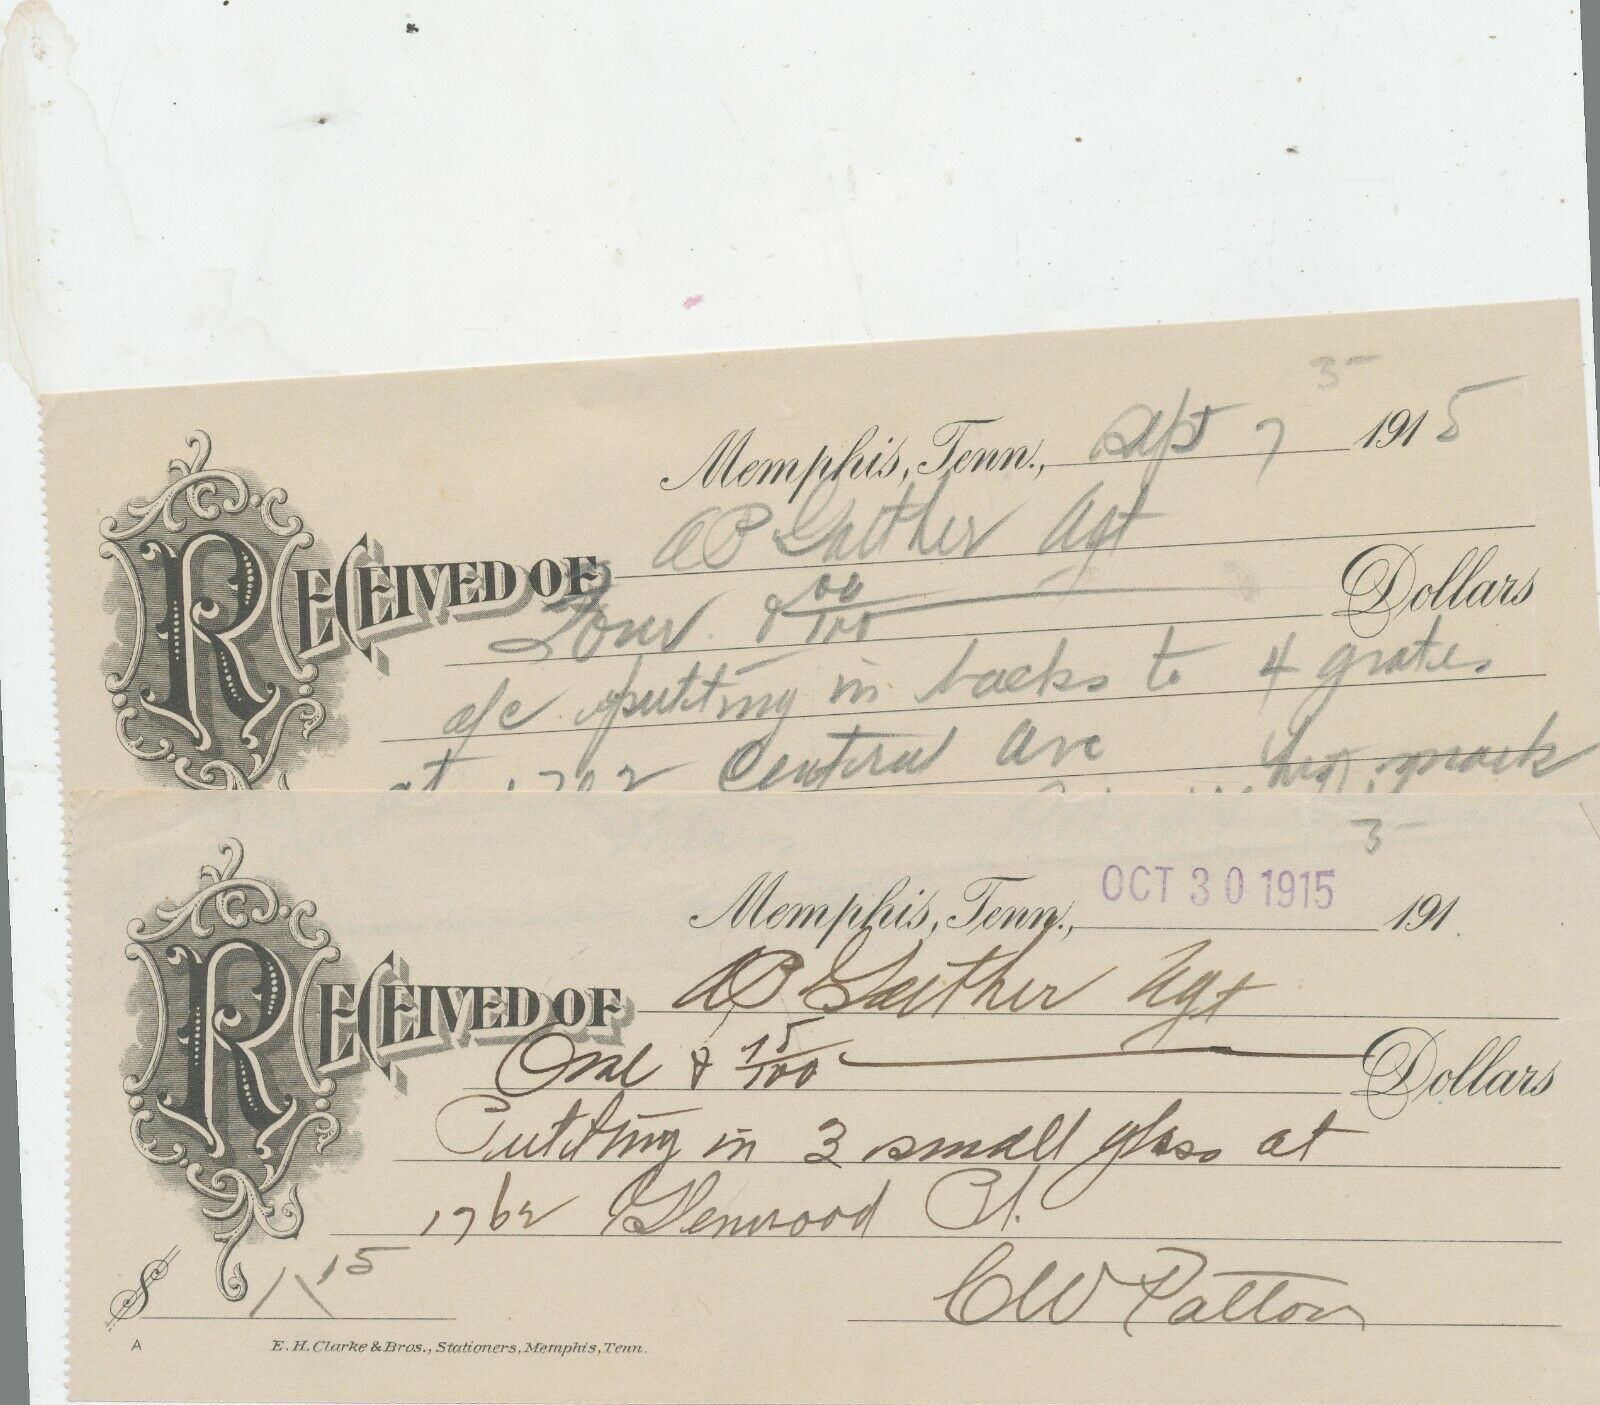 3-
Memphis, Tenn., Sept 7 1915
Received of A P Gaither Agt
Four & 00/100 Dollars
a/c putting in backs to 4 grates
at Central Ave his mark
3-
Memphis, Tenn., OCT 30 1915 191
Received of A P Gaither Agt
One & 15/100 Dollars
Putting in 3 small glass at
1762 Glenwood Pl.
$ 1 15 C W Patton
A E. H. Clarke & Bros., Stationers, Memphis, Tenn.